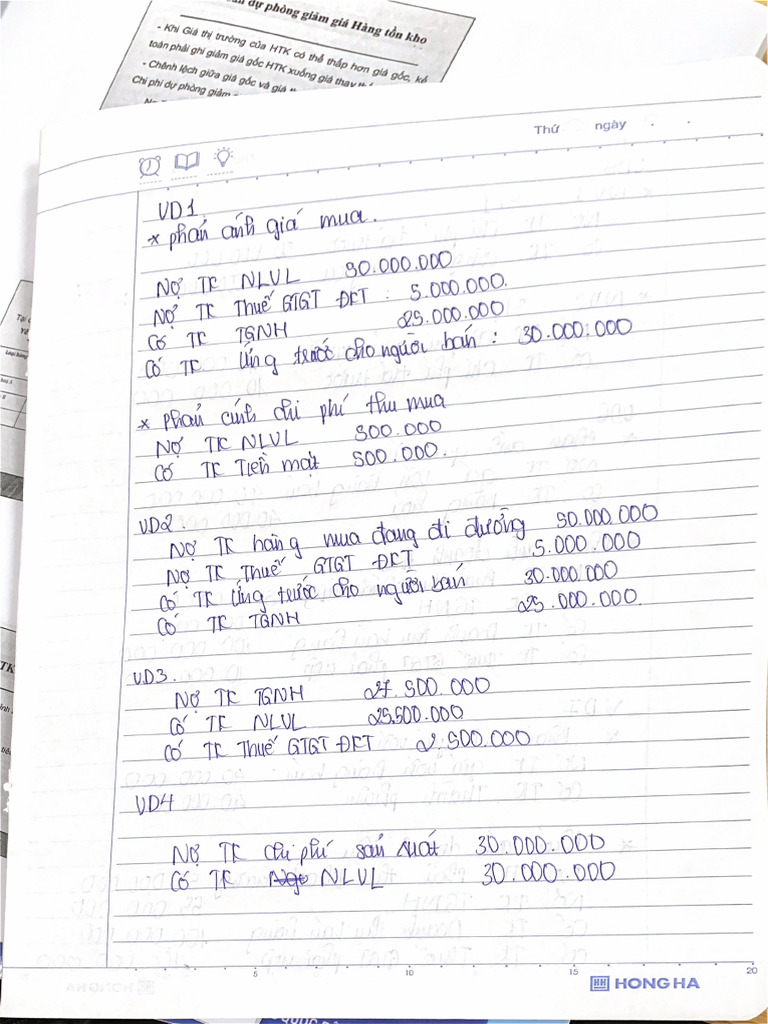 dự phòng giảm giá Hàng tồn kho
- Khi Giá thị trường của HTK có thể thấp hơn giá gốc, kế
toán phải ghi giảm giá gốc HTK xuống giá thay
- Chênh lệch giữa giá gốc và giá
Chi phí dự phòng giảm
Thứ ngày
VD1.
* phản ánh giá mua.
Nợ TK NLVL 50.000.000
Nợ TK Thuế GTGT ĐKT : 5.000.000.
Có TK TGNH 25.000.000
Có TK Ứng trước cho người bán : 30.000.000
* phản ánh chi phí thu mua
Nợ TK NLVL 500.000
Có TK Tiền mặt 500.000.
VD2.
Nợ TK hàng mua đang đi đường 50.000.000
Nợ TK Thuế GTGT ĐKT 5.000.000
Có TK Ứng trước cho người bán 30.000.000
Có TK TGNH 25.000.000
VD3.
Nợ TK TGNH 27.500.000
Có TK NLVL 25.500.000
Có TK Thuế GTGT ĐKT 2.500.000
VD4
Nợ TK chi phí sản xuất 30.000.000
Có TK NLVL 30.000.000
5 10 15 20
HH HONG HA